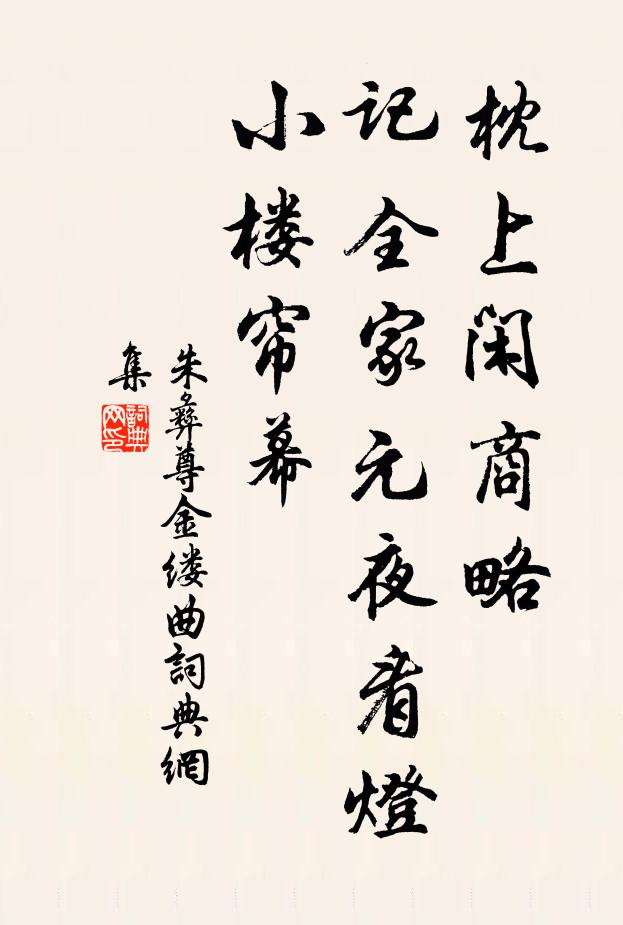 枕上闲商略
记全家元夜看燈
小楼帘幕
朱彝尊金缕曲詞典網
集
詞典
网印